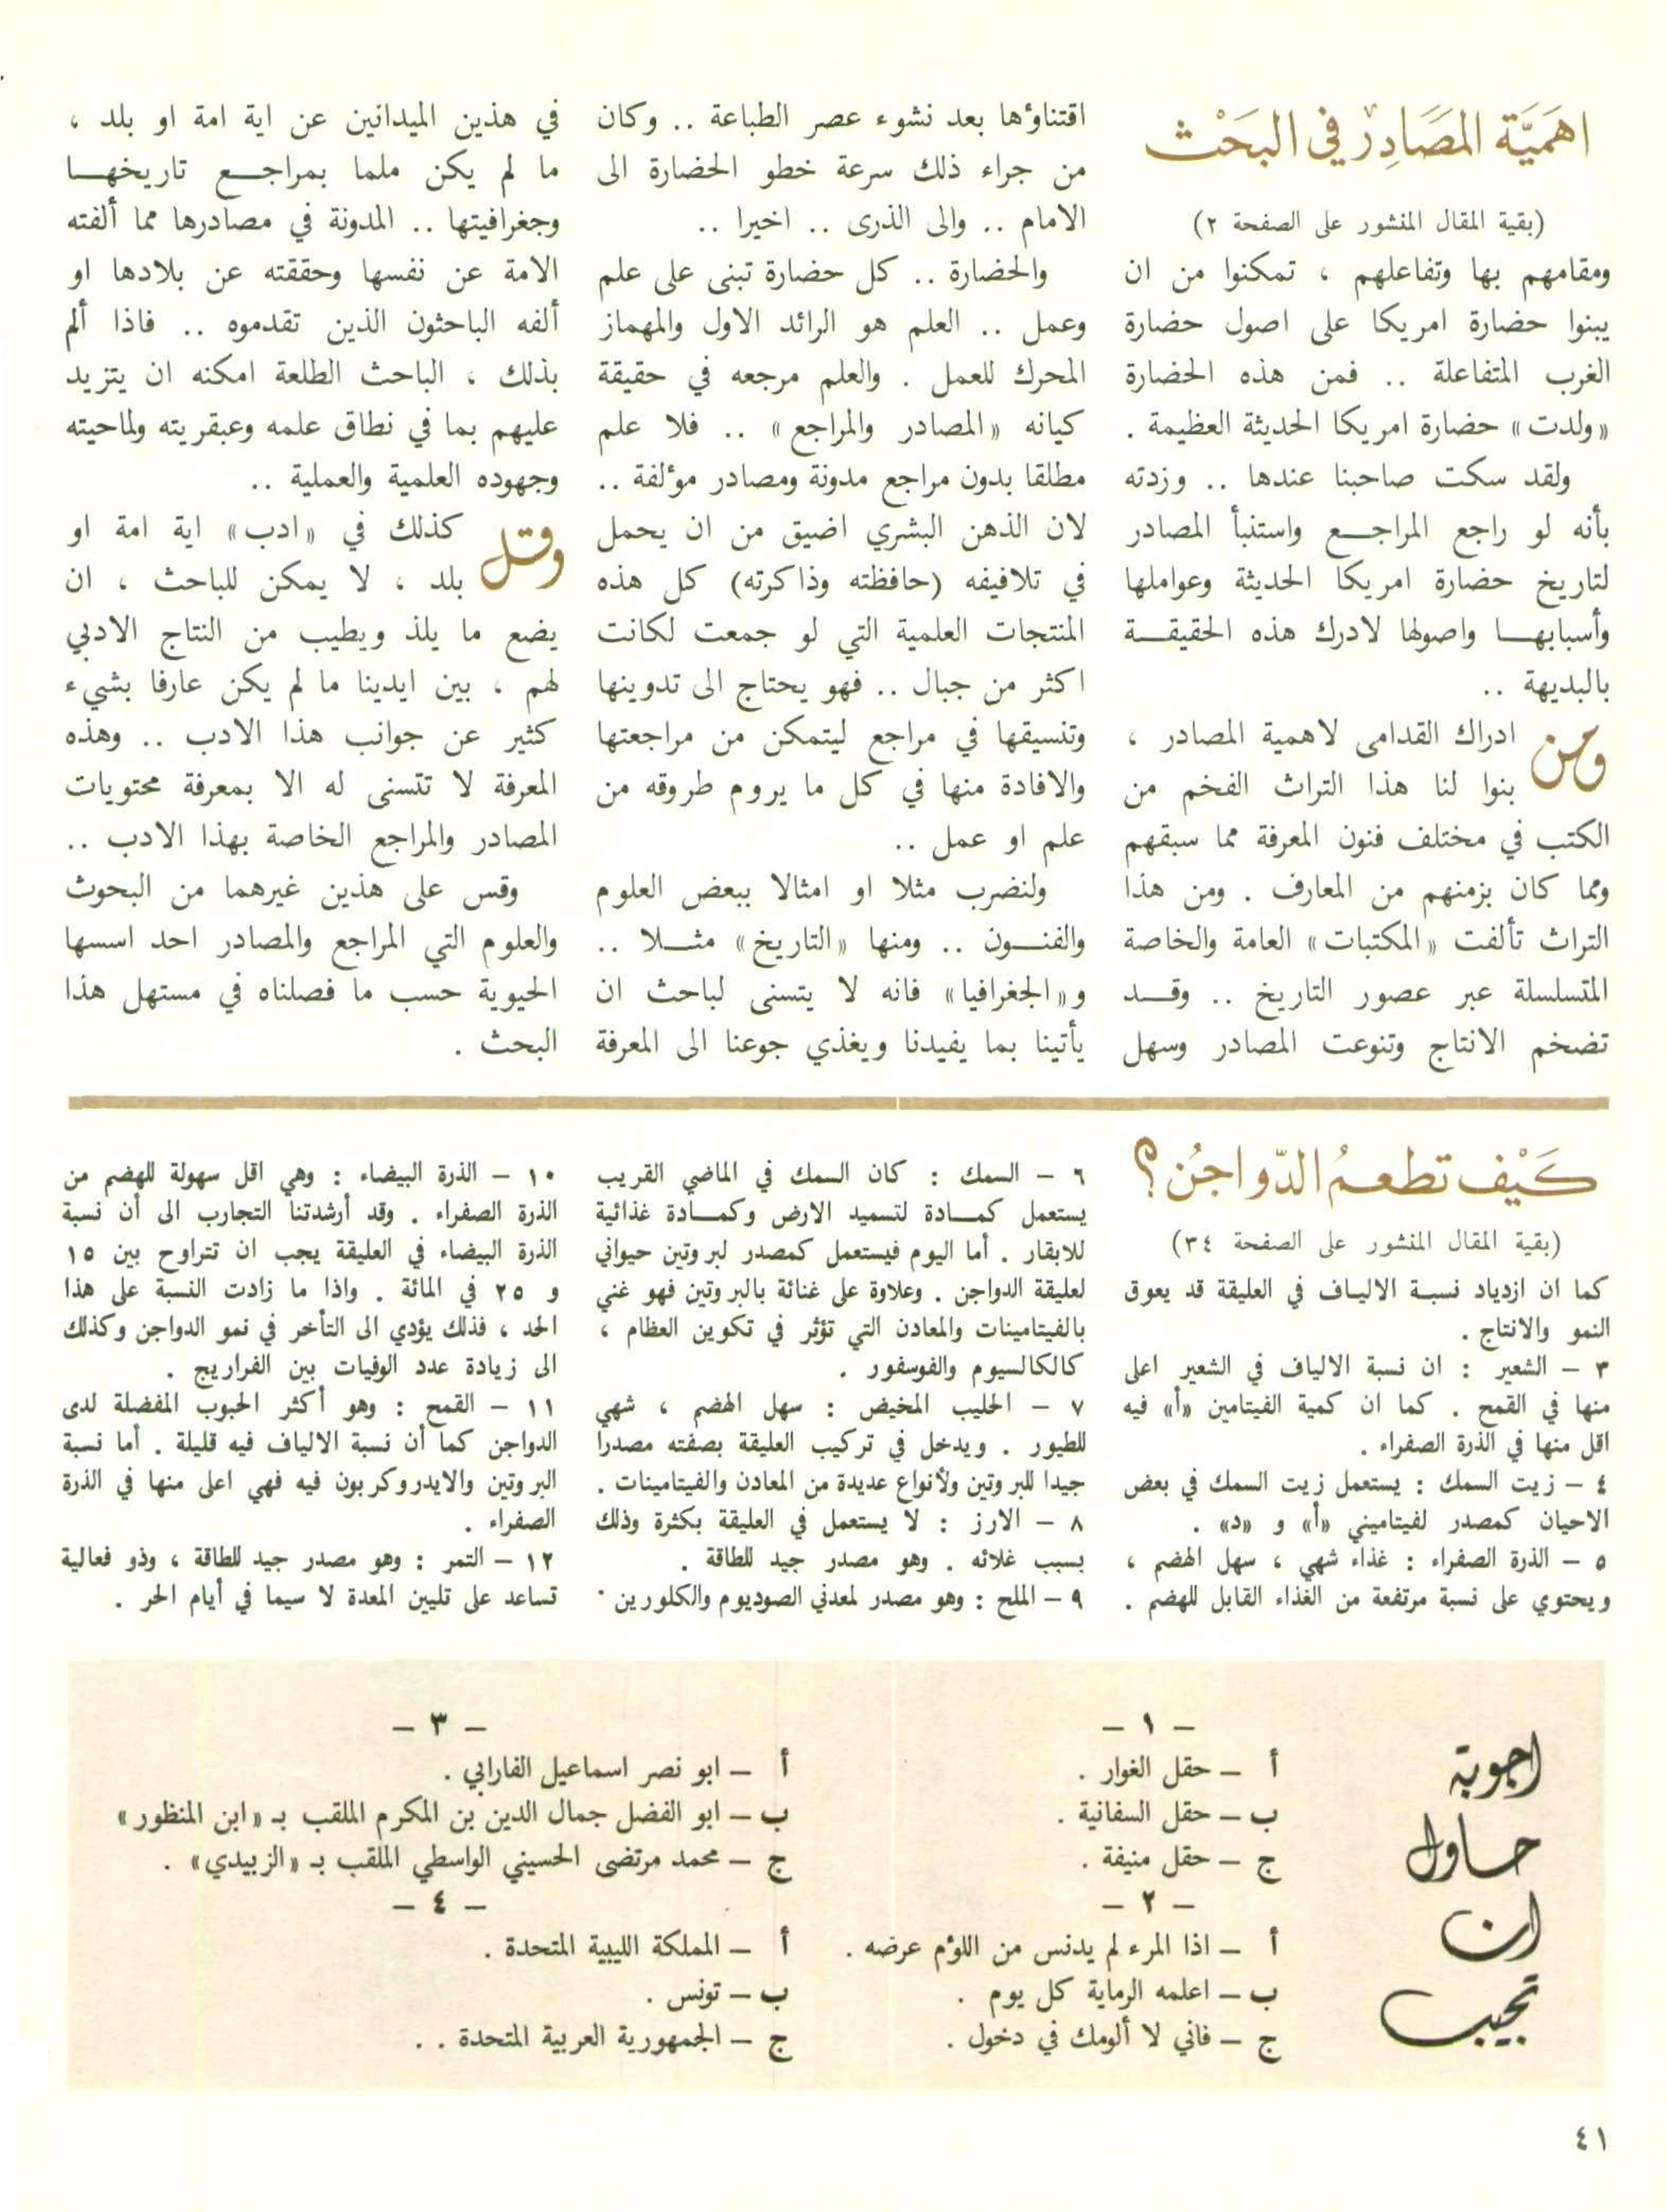 اهَمَيَّة المَصَادِرْ في البَحَثْ
(بقية المقال المنشور على الصفحة ٢)
ومقامهم بها وتفاعلهم ، تمكنوا من ان
يبنوا حضارة امريكا على اصول حضارة
الغرب المتفاعلة .. فمن هذه الحضارة
«ولدت» حضارة امريكا الحديثة العظيمة .
ولقد سكت صاحبنا عندها .. وزدته
بأنه لو راجع المراجع واستنبأ المصادر
لتاريخ حضارة امريكا الحديثة وعواملها
وأسبابها واصولها لادرك هذه الحقيقة
بالبديهة ..
ومن ادراك القدامى لاهمية المصادر ،
بنوا لنا هذا التراث الفخم من
الكتب في مختلف فنون المعرفة مما سبقهم
ومما كان بزمنهم من المعارف . ومن هذا
التراث تألفت «المكتبات» العامة والخاصة
المتسلسلة عبر عصور التاريخ .. وقد
تضخم الانتاج وتنوعت المصادر وسهل
اقتناؤها بعد نشوء عصر الطباعة .. وكان
من جراء ذلك سرعة خطو الحضارة الى
الامام .. والى الذرى .. اخيرا ..
والحضارة .. كل حضارة تبنى على علم
وعمل .. العلم هو الرائد الاول والمهماز
المحرك للعمل . والعلم مرجعه في حقيقة
كيانه «المصادر والمراجع» .. فلا علم
مطلقا بدون مراجع مدونة ومصادر مؤلفة ..
لان الذهن البشري اضيق من ان يحمل
في تلافيفه (حافظته وذاكرته) كل هذه
المنتجات العلمية التي لو جمعت لكانت
اكثر من جبال .. فهو يحتاج الى تدوينها
وتنسيقها في مراجع ليتمكن من مراجعتها
والافادة منها في كل ما يروم طروقه من
علم او عمل ..
ولنضرب مثلا او امثالا ببعض العلوم
والفنون .. ومنها «التاريخ» مثلا ..
و«الجغرافيا» فانه لا يتسنى لباحث ان
يأتينا بما يفيدنا ويغذي جوعنا الى المعرفة
في هذين الميدانين عن اية امة او بلد ،
ما لم يكن ملما بمراجع تاريخها
وجغرافيتها .. المدونة في مصادرها مما ألفته
الامة عن نفسها وحققته عن بلادها او
ألفه الباحثون الذين تقدموه .. فاذا ألم
بذلك ، الباحث الطلعة امكنه ان يتزيد
عليهم بما في نطاق علمه وعبقريته ولماحيته
وجهوده العلمية والعملية ..
وقل كذلك في «ادب» اية امة او
بلد ، لا يمكن للباحث ، ان
يضع ما يلذ ويطيب من النتاج الادبي
لهم ، بين ايدينا ما لم يكن عارفا بشيء
كثير عن جوانب هذا الادب .. وهذه
المعرفة لا تتسنى له الا بمعرفة محتويات
المصادر والمراجع الخاصة بهذا الادب ..
وقس على هذين غيرهما من البحوث
والعلوم التي المراجع والمصادر احد اسسها
الحيوية حسب ما فصلناه في مستهل هذا
البحث .
كَيْف تطعمُ الدّواجنُ ؟
(بقية المقال المنشور على الصفحة ٣٤)
كما ان ازدياد نسبة الالياف في العليقة قد يعوق
النمو والانتاج .
٣ – الشعير : ان نسبة الالياف في الشعير اعلى
منها في القمح . كما ان كمية الفيتامين «أ» فيه
اقل منها في الذرة الصفراء .
٤ – زيت السمك : يستعمل زيت السمك في بعض
الاحيان كمصدر لفيتاميني «أ» و «د» .
٥ – الذرة الصفراء : غذاء شهي ، سهل الهضم ،
ويحتوي على نسبة مرتفعة من الغذاء القابل للهضم .
٦ – السمك : كان السمك في الماضي القريب
يستعمل كمادة لتسميد الارض وكمادة غذائية
للابقار . أما اليوم فيستعمل كمصدر لبروتين حيواني
لعليقة الدواجن . وعلاوة على غنائة بالبروتين فهو غني
بالفيتامينات والمعادن التي تؤثر في تكوين العظام ،
كالكالسيوم والفوسفور .
٧ – الحليب المخيض : سهل الهضم ، شهي
للطيور . ويدخل في تركيب العليقة بصفته مصدرا
جيدا للبروتين ولأنواع عديدة من المعادن والفيتامينات .
٨ – الارز : لا يستعمل في العليقة بكثرة وذلك
بسبب غلائه . وهو مصدر جيد للطاقة .
٩ – الملح : وهو مصدر لمعدني الصوديوم والكلورين .
١٠ – الذرة البيضاء : وهي اقل سهولة للهضم من
الذرة الصفراء . وقد أرشدتنا التجارب الى أن نسبة
الذرة البيضاء في العليقة يجب ان تتراوح بين ١٥
و ٢٥ في المائة . واذا ما زادت النسبة على هذا
الحد ، فذلك يؤدي الى التأخر في نمو الدواجن وكذلك
الى زيادة عدد الوفيات بين الفراريج .
١١ – القمح : وهو أكثر الحبوب المفضلة لدى
الدواجن كما أن نسبة الالياف فيه قليلة . أما نسبة
البروتين والايدروكربون فيه فهي اعلى منها في الذرة
الصفراء .
١٢ – التمر : وهو مصدر جيد للطاقة ، وذو فعالية
تساعد على تليين المعدة لا سيما في أيام الحر .
اجوبة
حاول
ان
تجيب
– ١ –
أ – حقل الغوار .
ب – حقل السفانية .
ج – حقل منيفة .
– ٢ –
أ – اذا المرء لم يدنس من اللؤم عرضه .
ب – اعلمه الرماية كل يوم .
ج – فاني لا ألومك في دخول .
– ٣ –
أ – ابو نصر اسماعيل الفارابي .
ب – ابو الفضل جمال الدين بن المكرم الملقب بـ «ابن المنظور»
ج – محمد مرتضى الحسيني الواسطي الملقب بـ «الزبيدي» .
– ٤ –
أ – المملكة الليبية المتحدة .
ب – تونس .
ج – الجمهورية العربية المتحدة . .
٤١